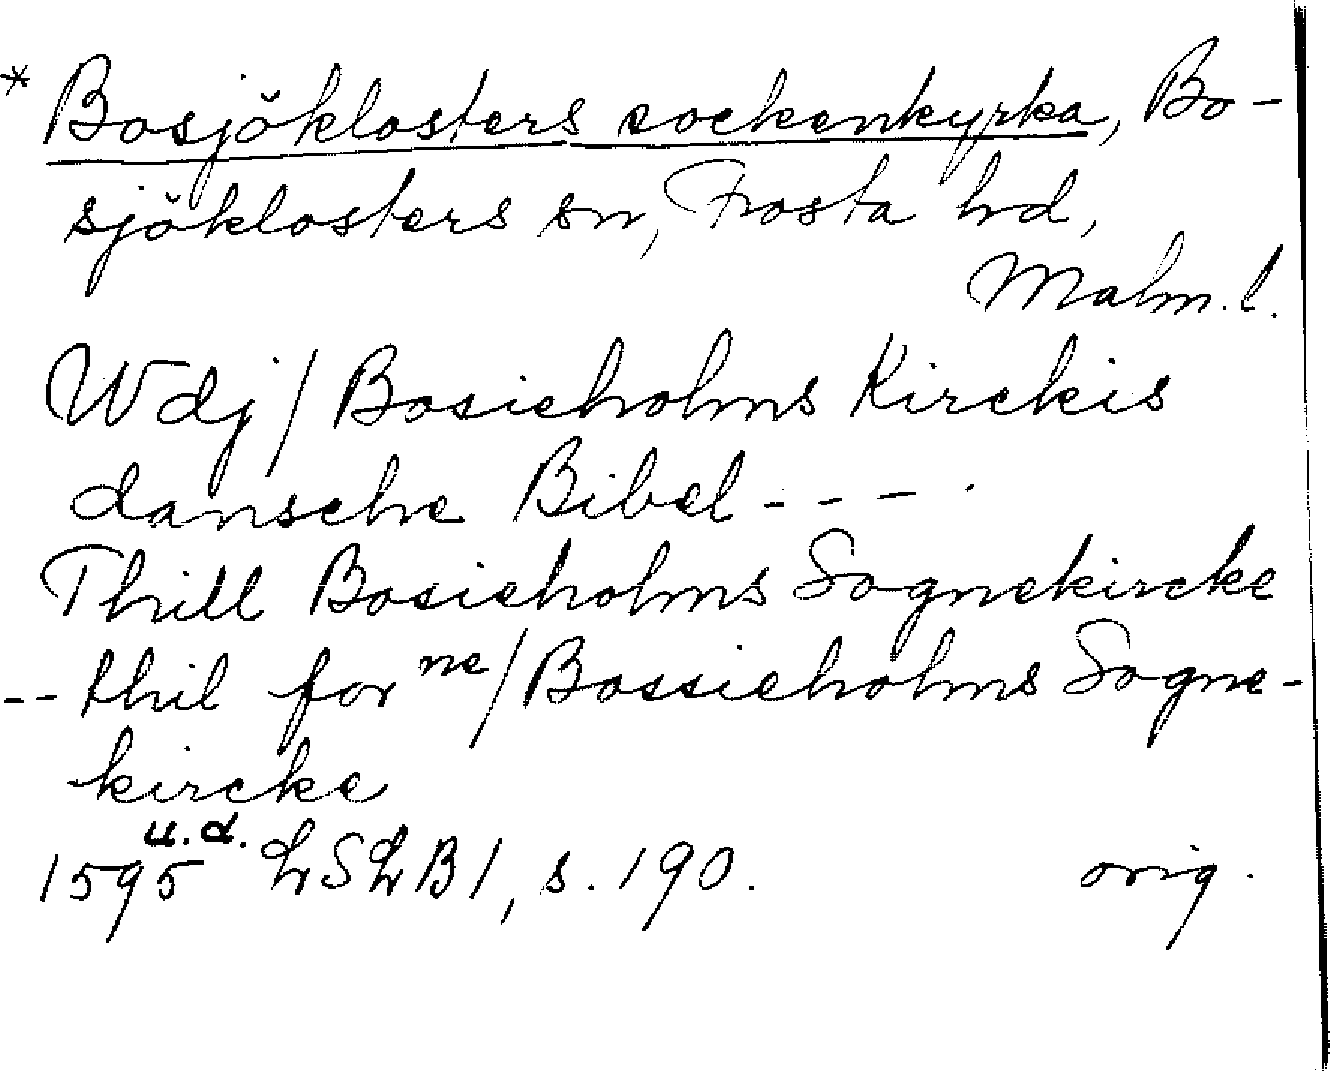 * Bosjöklosters sockenkyrka, Bo-
sjöklosters sn, Frosta hd,
Malm. l.
Wdj/Bosieholms Kirckis
dansche Bibel - - - .
Thill Bosieholms Sognekircke
-- thil for ne/Bossieholms Sogne-
kircke
u.d.
1595 LSLB1, s. 190. orig.